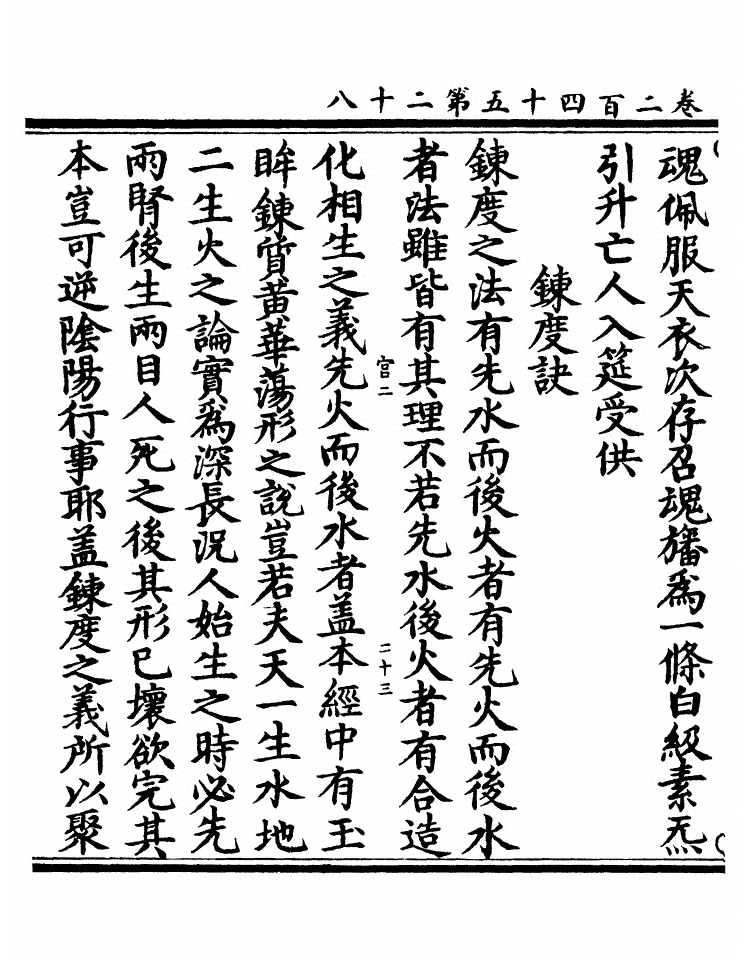 卷二百四十五第二十八
魂佩服天衣次存召魂旛為一條白級素炁
引升亡人入筵受供
鍊度訣
鍊度之法有先水而後火者有先火而後水
者法雖皆有其理不若先水後火者有合造
宫二
二十三
化相生之義先火而後水者盖本經中有玉
眸鍊質黄華蕩形之說豈若夫天一生水地
二生火之論實為深長況人始生之時必先
兩腎後生兩目人死之後其形已壞欲完其
本豈可逆陰陽行事耶盖鍊度之義所以聚